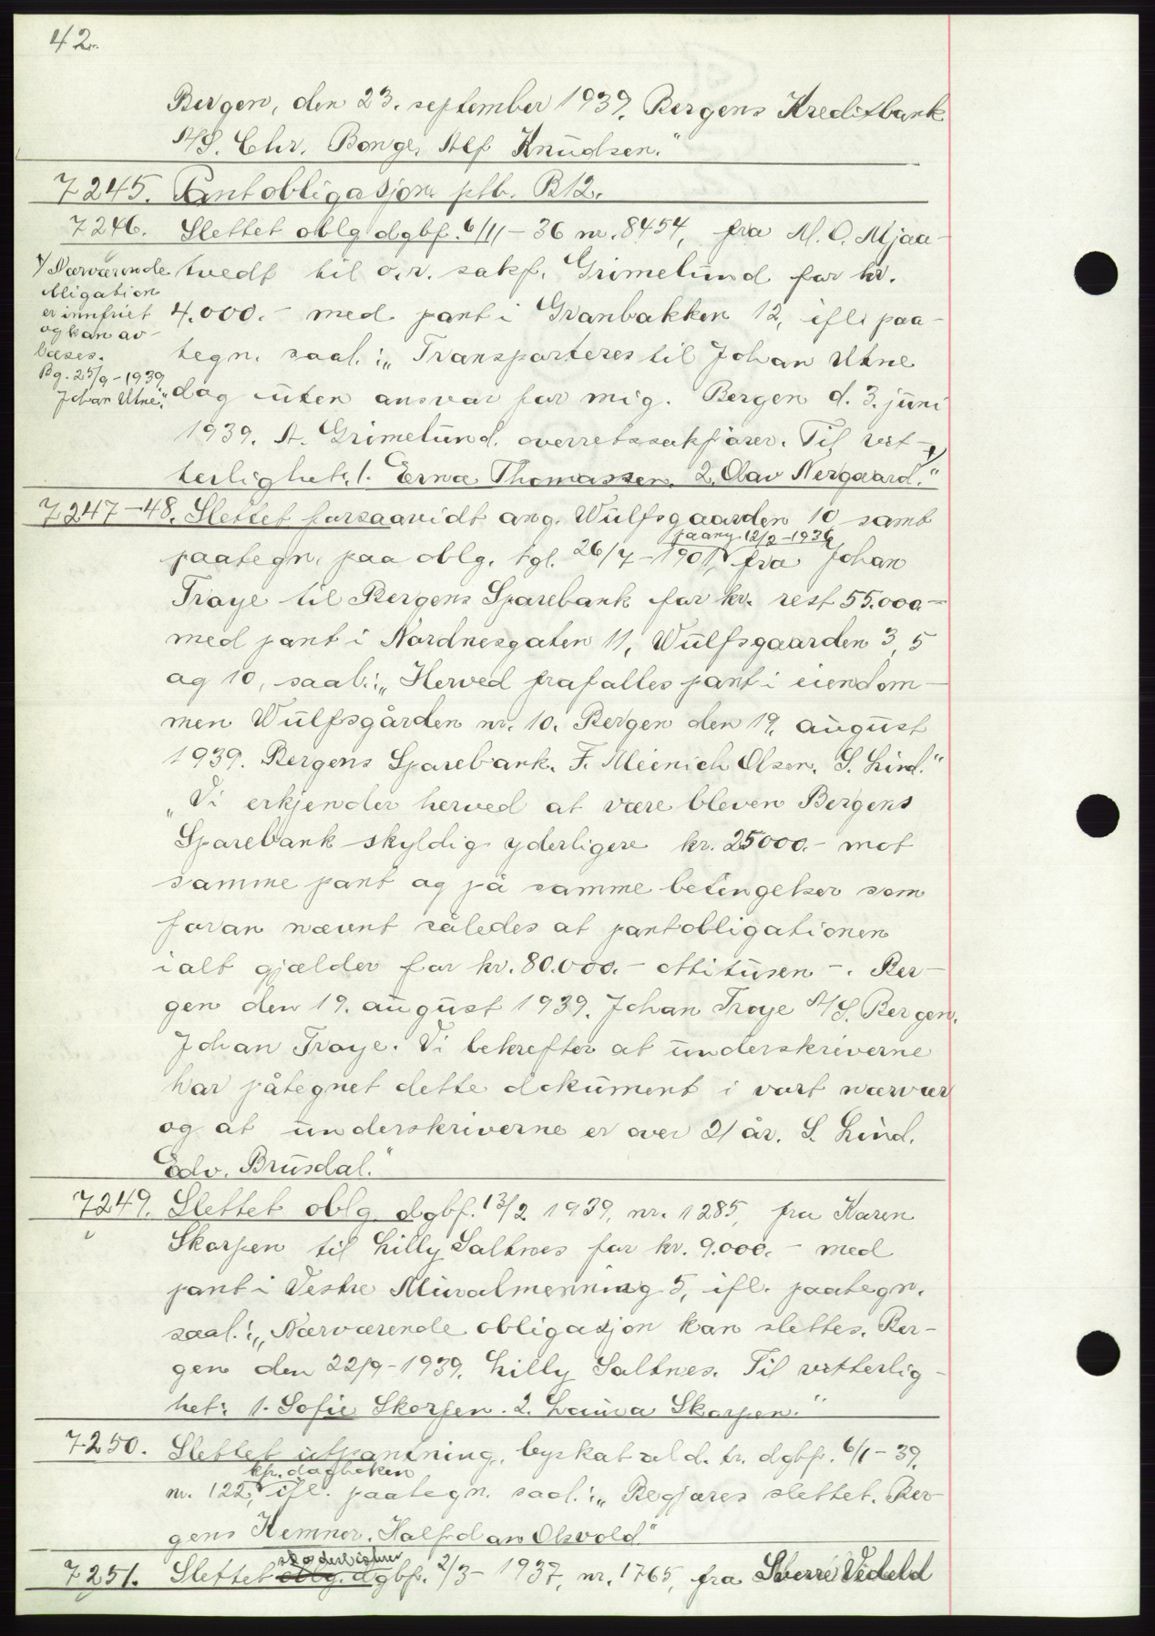 42.
Bergen, den 23. september 1939. Bergens Kreditbank
A/S. Chr. Bonge. Alf Knudsen."
7245. Pantobligasjon ptb. B12.
7246. Slettet oblg dgbf. 6/11-36 nr. 8454, fra M. O. Mjaa-
tvedt til o.r. sakf. Grimelund for kr.
4.000.- med pant i Granbakken 12, ifl. paa-
tegn. saal.: „Transporteres til Johan Utne
dag uten ansvar for mig. Bergen d. 3. juni
1939. A. Grimelund. overretssakfører. Til vit-
terlighet: 1. Erna Thomassen. 2. Olav Nergaard." 1/
1/ Nærværende
obligation
er innfriet
og kan av-
læses.
Bg. 25/9-1939
Johan Utne".
7247-48. Slettet forsaavidt ang. Wulfsgaarden 10 samt
paany 12/2-1936
paategn. paa oblg. tgl. 26/7-1901, fra Johan
Troye til Bergens Sparebank for kr. rest 55.000.-
med pant i Nordnesgaten 11, Wulfsgaarden 3, 5
og 10, saal.: „Herved frafalles pant i eiendom-
men Wulfsgården nr. 10. Bergen den 19. august
1939. Bergens Sparebank. F. Meinich Olsen. S. Lind."
„Vi erkjender herved at være bleven Bergens
Sparebank skyldig yderligere kr. 25000.- mot
samme pant og på samme betingelser som
foran nævnt således at pantobligationen
ialt gjælder for kr. 80.000.- ottitusen -. Ber-
gen den 19. august 1939. Johan Troye A/S. Bergen.
Johan Troye. Vi bekrefter at underskriverne
har påtegnet dette dokument i vort nærvær
og at underskriverne er over 21 år. S. Lind.
Edv. Brusdal."
7249. Slettet oblg dgbf. 13/2 1939, nr. 1285, fra Karen
Skorpen til Lilly Saltnes for kr. 9.000.- med
pant i Vestre Muralmenning 5, ifl. paategn.
saal.: „Nærværende obligasjon kan slettes. Ber-
gen den 22/9-1939. Lilly Saltnes. Til vitterlig-
het: 1. Sofie Skorpen. 2. Laura Skorpen."
7250. Slettet utpantning, byskat afd. tr. dgbf. 6/1-39,
kfr. dagboken
nr. 122, ifl. paategn. saal.: „Begjæres slettet. Ber-
gens Kemner. Halfdan Olsvold"
skadesløsbrev
7251. Slettet oblg. dgbf. 2/3-1937, nr. 1765, fra Sverre Vedeld